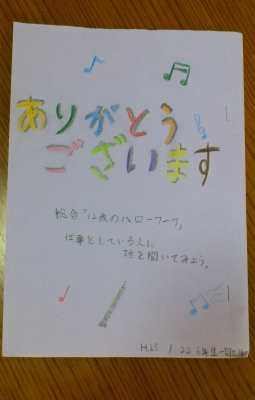 ありがとう
ございます
総合「12歳のハローワーク」
仕事をしている人に
話を聞いてみよう。
H.25 1.22 6年生一同より